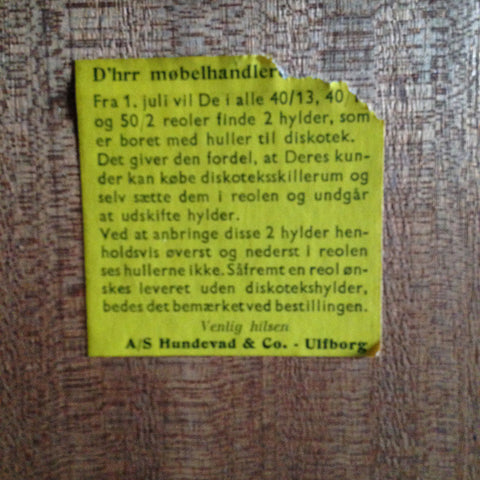 D'hrr møbelhandler
Fra 1. juli vil De i alle 40/13, 40/1
og 50/2 reoler finde 2 hylder, som
er boret med huller til diskotek.
Det giver den fordel, at Deres kun-
der kan købe diskoteksskillerum og
selv sætte dem i reolen og undgår
at udskifte hylder.
Ved at anbringe disse 2 hylder hen-
holdsvis øverst og nederst i reolen
ses hullerne ikke. Såfremt en reol øn-
skes leveret uden diskotekshylder,
bedes det bemærket ved bestillingen.
Venlig hilsen
A/S Hundevad & Co. - Ulfborg